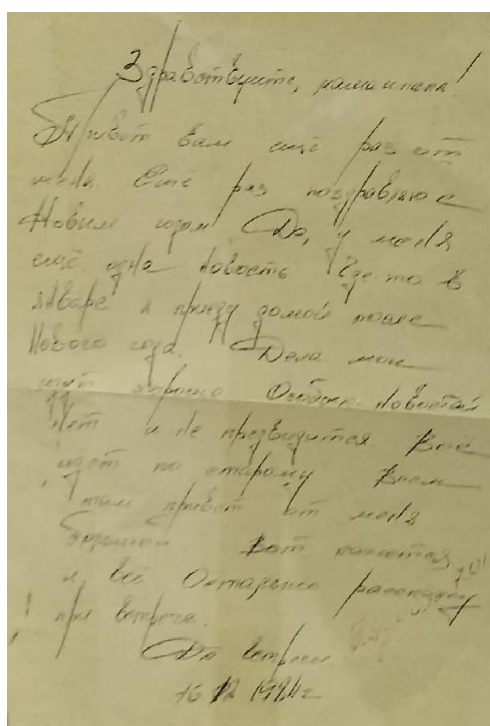 Здравствуйте, мама и папа!
Привет вам ещё раз от
меня. Еще раз поздравляю с
Новым годом Да, у меня
ещё одна новость Где-то в
январе я приеду домой после
Нового года. Дела мои
идут хорошо Особых новостей
нет и не предвидится Всё
идёт по старому Всем
там привет от меня
большой Вот кажется
и всё Остальное расскажу
при встрече.
До встречи
1984г